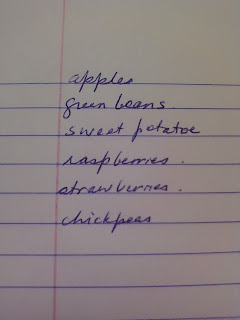 apples
green beans.
sweet potatoe
raspberries.
strawberries.
chickpeas